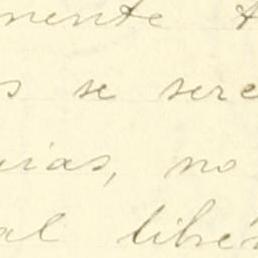 mente t
s se sere
uias, no
al libér